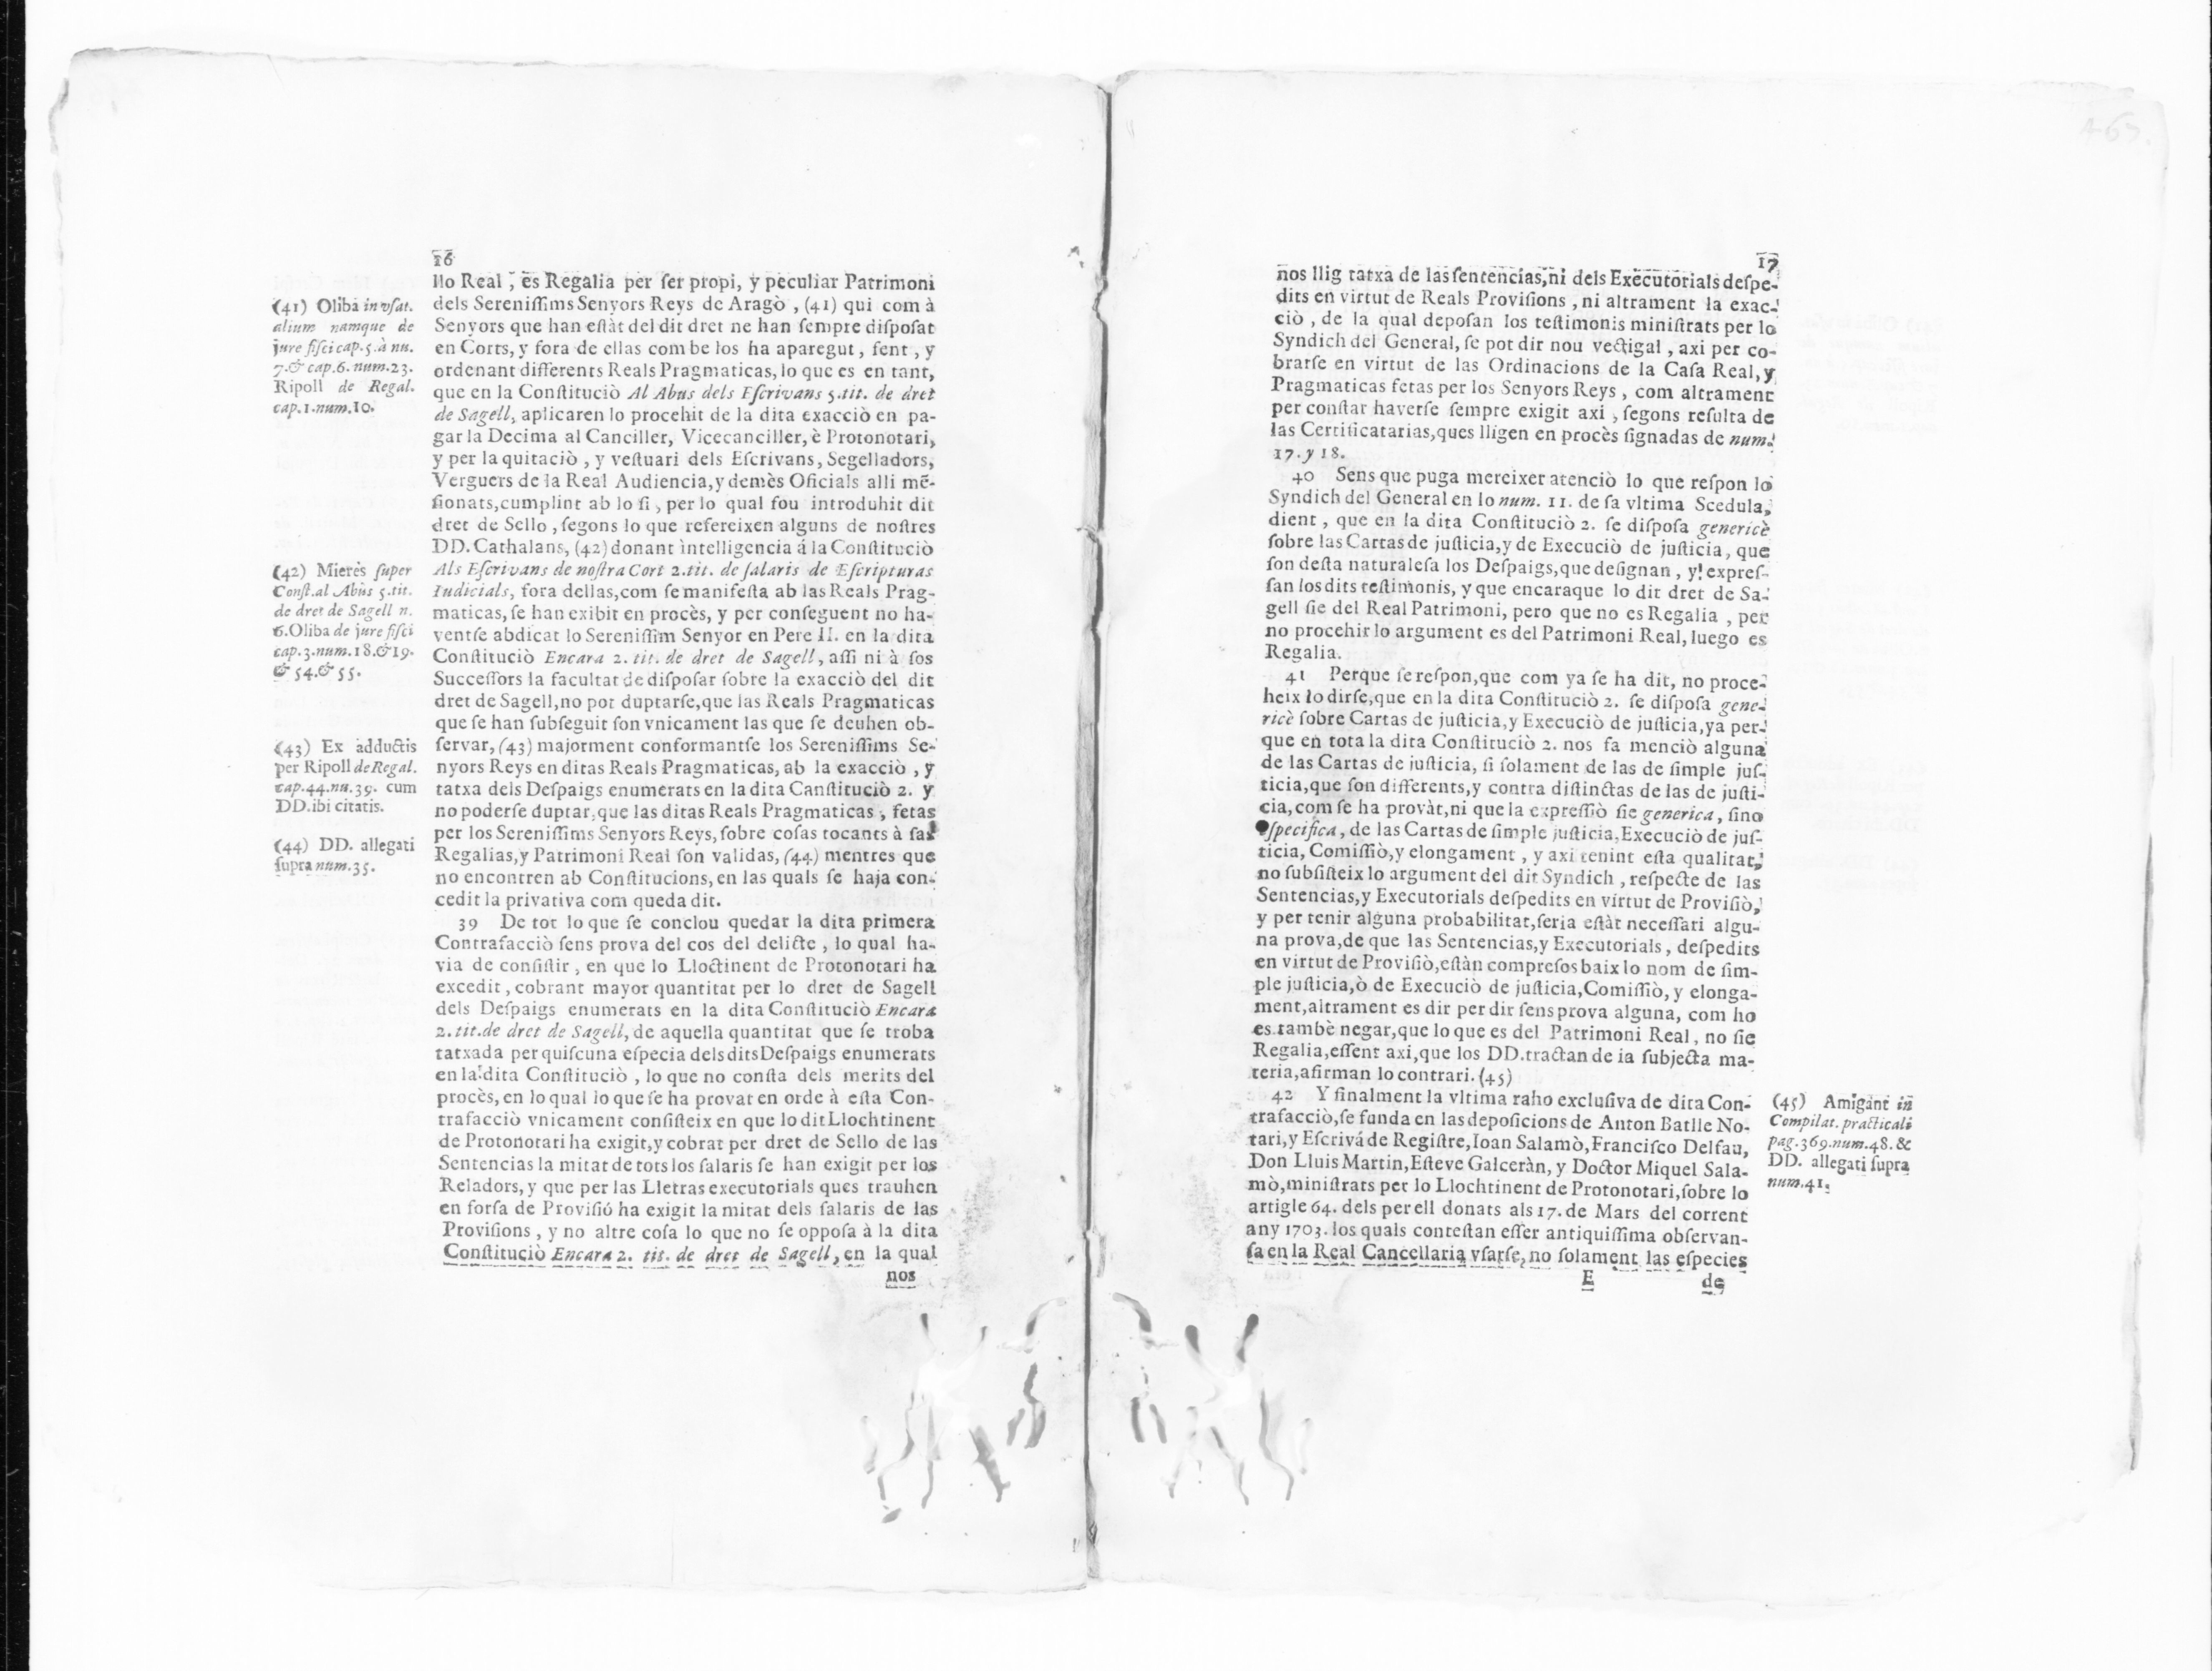 16
llo Real, es Regalia per ser propi, y peculiar Patrimoni
dels Serenissims Senyors Reys de Aragò, (41) qui com à
Senyors que han estàt del dit dret ne han sempre disposat
en Corts, y fora de ellas com be los ha aparegut, fent, y
ordenant differents Reals Pragmaticas, lo que es en tant,
que en la Constituciò Al Abus dels Escrivans 5. tit. de dret
de Sagell, aplicaren lo procehit de la dita exacciò en pa-
gar la Decima al Canciller, Vicecanciller, è Protonotari,
y per la quitaciò, y vestuari dels Escrivans, Segelladors,
Verguers de la Real Audiencia, y demès Oficials alli mẽ-
sionats, cumplint ab lo si, per lo qual fou introduhit dit
dret de Sello, segons lo que refereixen alguns de nostres
DD. Cathalans, (42) donant intelligencia á la Constituciò
Als Escrivans de nostra Cort 2. tit. de salaris de Escripturas
Iudicials, fora dellas, com se manifesta ab las Reals Prag-
maticas, se han exibit en procès, y per conseguent no ha-
ventse abdicat lo Serenissim Senyor en Pere II. en la dita
Constituciò Encara 2. tit. de dret de Sagell, assi ni à sos
Successors la facultat de disposar sobre la exacciò del dit
dret de Sagell, no pot duptarse, que las Reals Pragmaticas
que se han subseguit son vnicament las que se deuhen ob-
servar, (43) majorment conformantse los Serenissims Se-
nyors Reys en ditas Reals Pragmaticas, ab la exacciò, y
tatxa dels Despaigs enumerats en la dita Canstituciò 2. y
no poderse duptar, que las ditas Reals Pragmaticas, fetas
per los Serenissims Senyors Reys, sobre cosas tocants à sas
Regalias, y Patrimoni Real son validas, (44) mentres que
no encontren ab Constitucions, en las quals se haja con-
cedit la privativa com queda dit.
39 De tot lo que se conclou quedar la dita primera
Contrafacciò sens prova del cos del delicte, lo qual ha-
via de consistir, en que lo Lloctinent de Protonotari ha
excedit, cobrant mayor quantitat per lo dret de Sagell
dels Despaigs enumerats en la dita Constituciò Encara
2. tit. de dret de Sagell, de aquella quantitat que se troba
tatxada per quiscuna especia dels dits Despaigs enumerats
en la dita Constituciò, lo que no consta dels merits del
procès, en lo qual lo que se ha provat en orde à esta Con-
trafacciò vnicament consisteix en que lo dit Llochtinent
de Protonotari ha exigit, y cobrat per dret de Sello de las
Sentencias la mitat de tots los salaris se han exigit per los
Reladors, y que per las Lletras executorials ques trauhen
en forsa de Provisió ha exigit la mitat dels salaris de las
Provisions, y no altre cosa lo que no se opposa à la dita
Constituciò Encara 2. tit. de dret de Sagell, en la qual
nos
(41) Oliba in vsat.
alium namque de
jure fisci cap. 5. à nu.
7. & cap. 6. num. 23.
Ripoll de Regal.
cap. 1. num. 10.
(42) Mieres super
Const. al Abùs 5. tit.
de dret de Sagell n.
6. Oliba de jure fisci
cap. 3. num. 18. & 19.
& 54. & 55.
(43) Ex adductis
per Ripoll de Regal.
cap. 44. nu. 39. cum
DD. ibi citatis.
(44) DD. allegati
supra num. 35.
17
nos llig tatxa de las sentencias, ni dels Executorials despe-
dits en virtut de Reals Provisions, ni altrament la exac-
ciò, de la qual deposan los testimonis ministrats per lo
Syndich del General, se pot dir nou vectigal, axi per co-
brarse en virtut de las Ordinacions de la Casa Real, y
Pragmaticas fetas per los Senyors Reys, com altrament
per constar haverse sempre exigit axi, segons resulta de
las Certificatarias, ques lligen en procès signadas de num.
17. y 18.
40 Sens que puga mereixer atenciò lo que respon lo
Syndich del General en lo num. 11. de sa vltima Scedula,
dient, que en la dita Constituciò 2. se disposa genericè
sobre las Cartas de justicia, y de Execuciò de justicia, que
son desta naturalesa los Despaigs, que designan, y expres-
san los dits testimonis, y que encaraque lo dit dret de Sa-
gell sie del Real Patrimoni, pero que no es Regalia, per
no procehir lo argument es del Patrimoni Real, luego es
Regalia.
41 Perque se respon, que com ya se ha dit, no proce-
heix lo dirse, que en la dita Constituciò 2. se disposa gene-
ricè sobre Cartas de justicia, y Execuciò de justicia, ya per-
que en tota la dita Constituciò 2. nos fa menciò alguna
de las Cartas de justicia, si solament de las de simple jus-
ticia, que son differents, y contra distinctas de las de justi-
cia, com se ha provàt, ni que la expressiò sie generica, sino
specifica, de las Cartas de simple justicia, Execuciò de jus-
ticia, Comissiò, y elongament, y axi tenint esta qualitat,
no subsisteix lo argument del dit Syndich, respecte de las
Sentencias, y Executorials despedits en virtut de Provisiò,
y per tenir alguna probabilitat, seria estàt necessari algu-
na prova, de que las Sentencias, y Executorials, despedits
en virtut de Provisiò, estàn compresos baix lo nom de sim-
ple justicia, ò de Execuciò de justicia, Comissiò, y elonga-
ment, altrament es dir per dir sens prova alguna, com ho
es tambè negar, que lo que es del Patrimoni Real, no sie
Regalia, essent axi, que los DD. tractan de la subjecta ma-
teria, afirman lo contrari. (45)
42 Y finalment la vltima raho exclusiva de dita Con-
trafacciò, se funda en las deposicions de Anton Batlle No-
tari, y Escrivá de Registre, Ioan Salamò, Francisco Delfau,
Don Lluis Martin, Esteve Galceràn, y Doctor Miquel Sala-
mò, ministrats per lo Llochtinent de Protonotari, sobre lo
artigle 64. dels per ell donats als 17. de Mars del corrent
any 1703. los quals contestan esser antiquissima observan-
sa en la Real Cancellaria vsarse, no solament las especies
E de
(45) Amigant in
Compilat. practicali
pag. 369. num. 48. &
DD. allegati supra
num. 41.